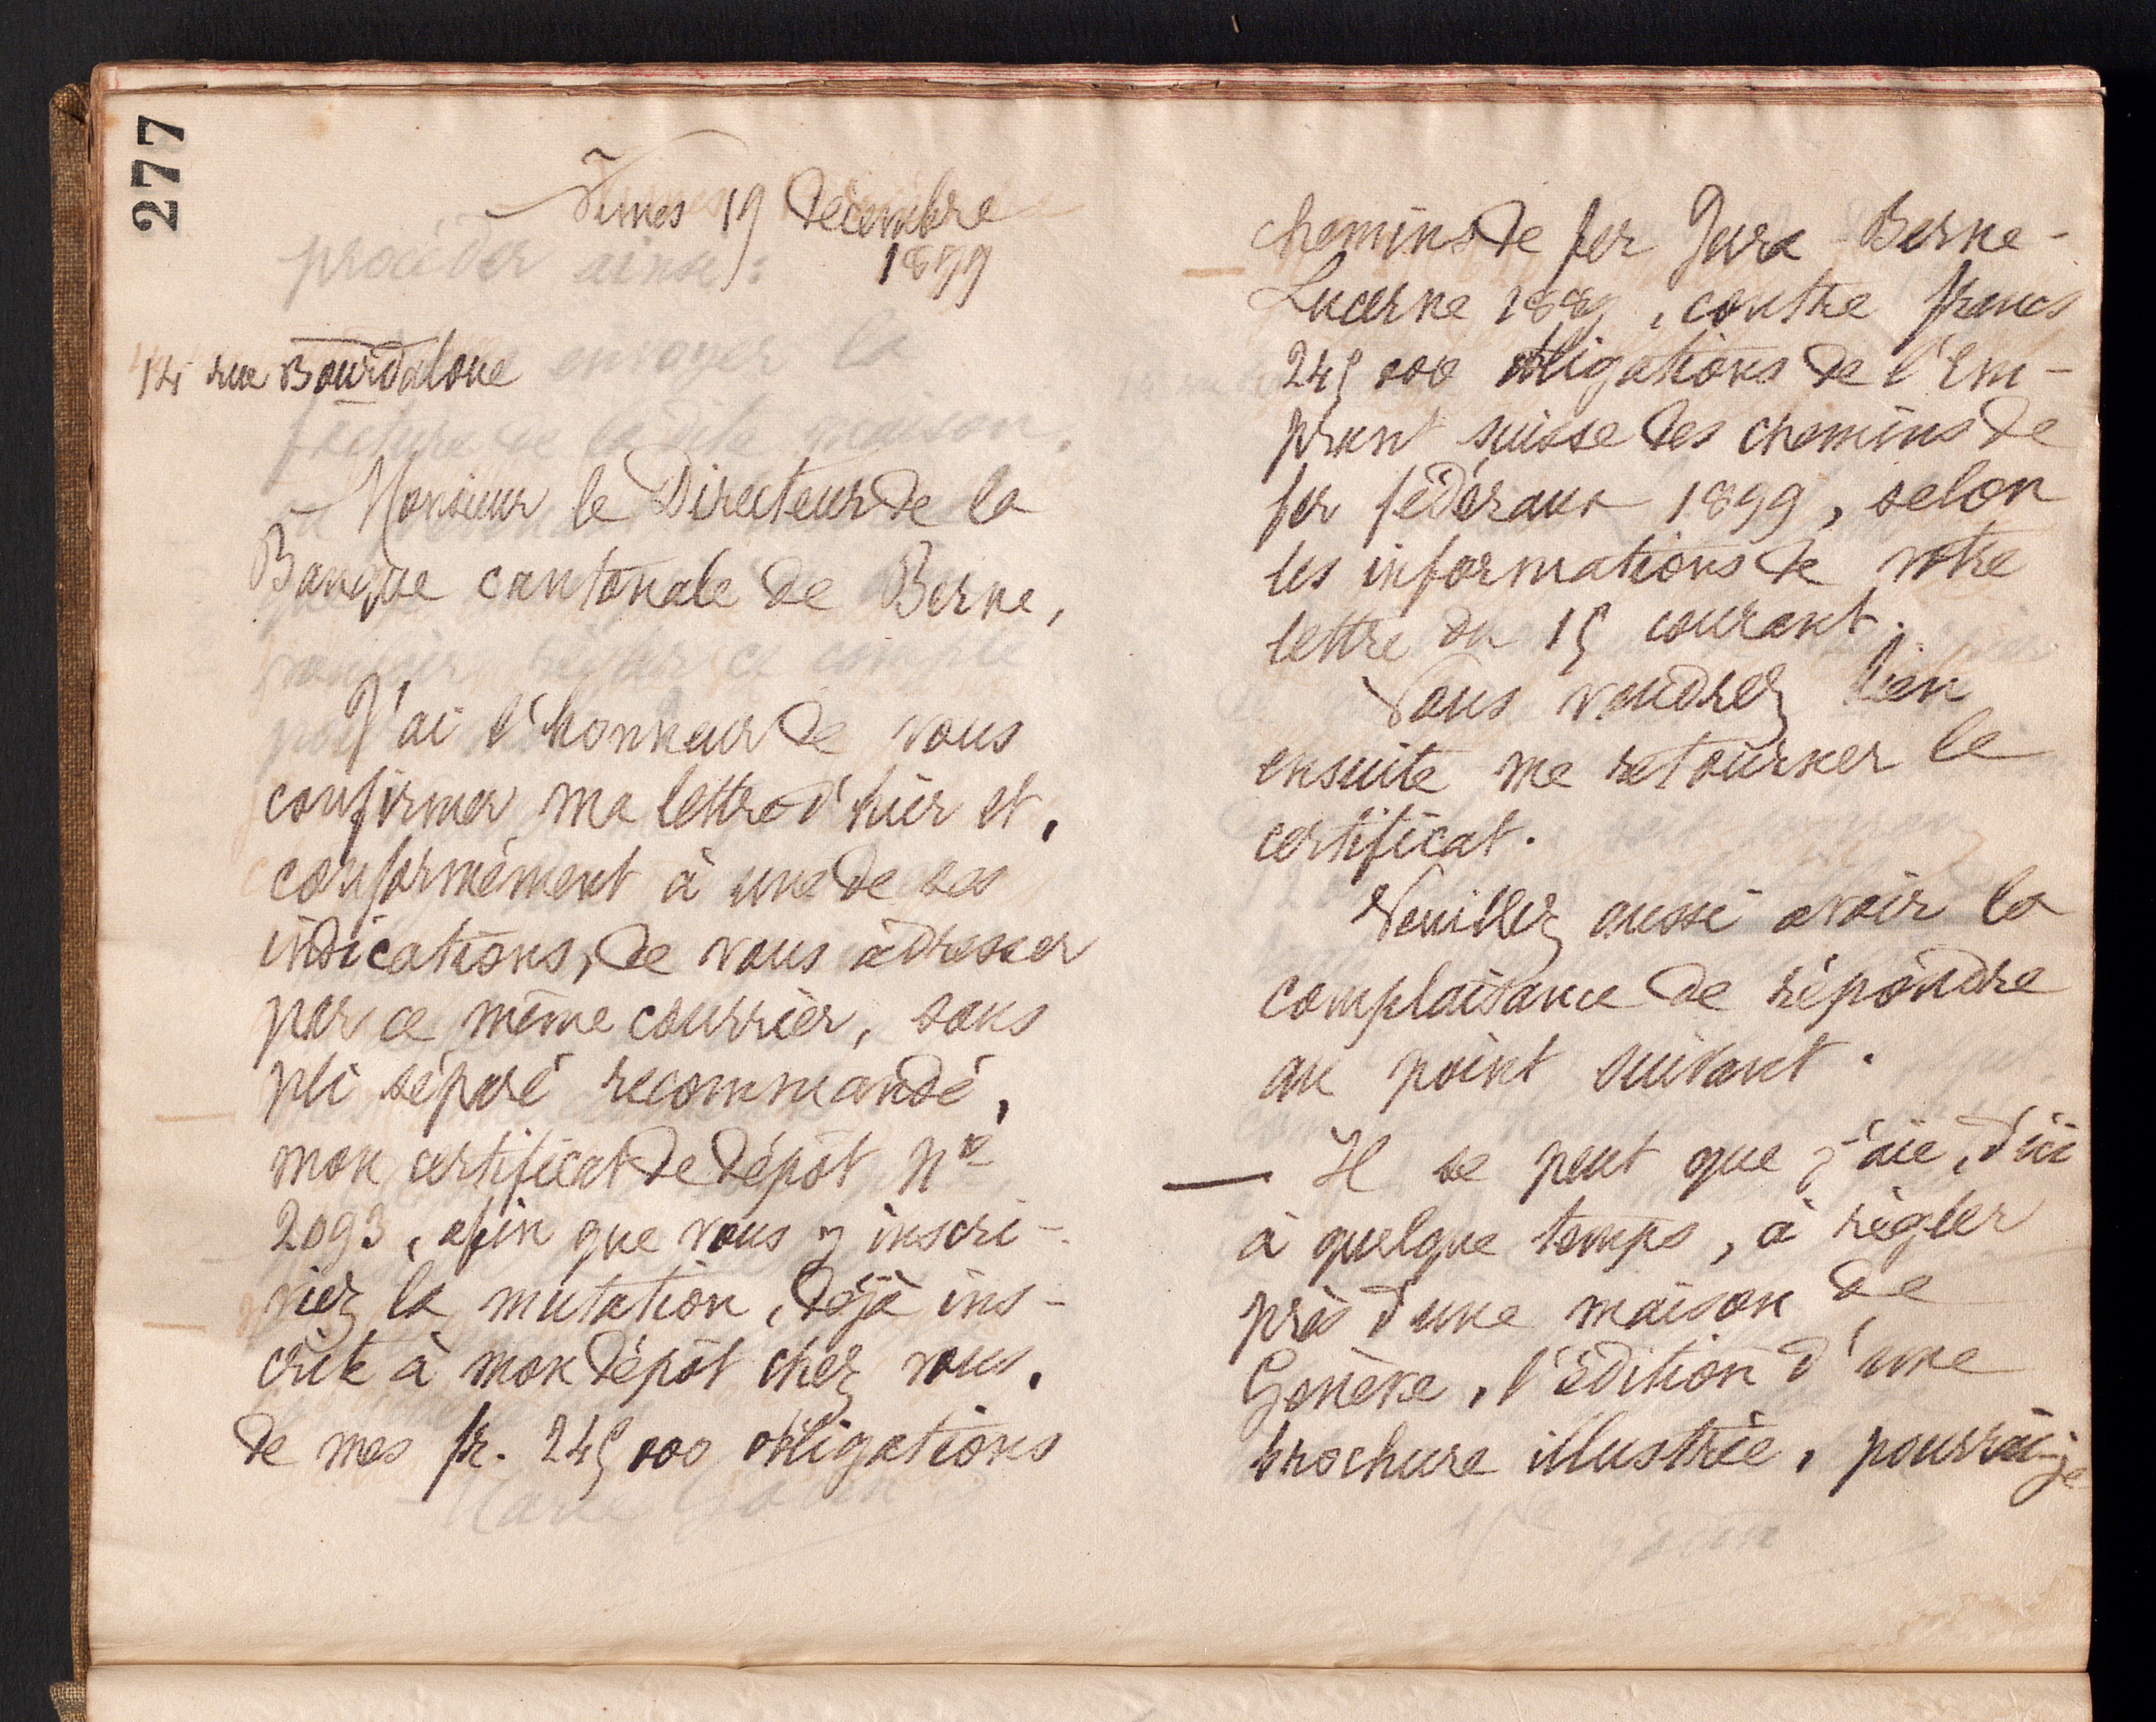 277
Nîmes 19 décembre
1899
14 rue Bourdaloue
Monsieur le Directeur de la
Banque cantonale de Berne,
J'ai l'honneur de vous
confirmer ma lettre d'hier et,
conformément à une de ses
indications, de vous adresser
par ce même courrier, sous
pli séparé recommandé,
mon certificat de dépôt No
2093, afin que vous y inscri-
viez la mutation, déjà ins-
crite à mon dépôt chez vous,
de mes fr. 245 000 obligations
chemins de fer Jura-Berne-
Lucerne 1889, contre francs
245 000 obligations de l'Em-
prunt suisse des chemins de
fer fédéraux 1899, selon
les informations de votre
lettre du 15 courant.
Vous voudrez bien
ensuite me retourner le
certificat.
Veuillez aussi avoir la
complaisance de répondre
au point suivant.
— Il se peut que j'aie, d'ici
à quelque temps, à régler
près d'une maison de
Genève, l'édition d'une
brochure illustrée, pourrai-je